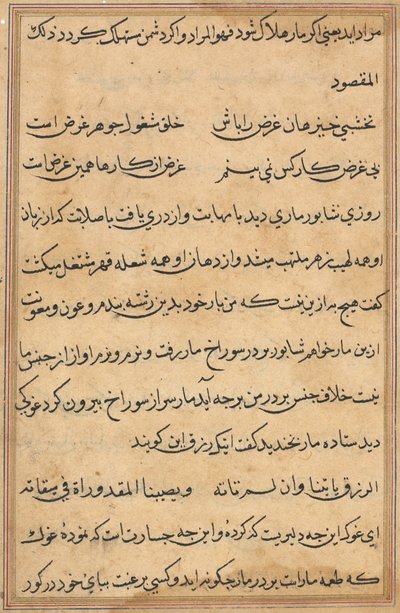 مراد اید یعنی اکر مار هلاک شود فهو المراد و اکر دشمن مستهلک کردد ذلک
المقصود
نخشبی خیز هان غرض را باش خلق مشغول جوهر غرض است
بی غرض کار کس نمی بینم غرض از کارها همین غرض است
روزی شابور ماری دید با مهابت و اژدری یافت با صلابت که از زبان
او همه لهیب زهر ملتهب میشد و از دهان او همه شعله قهر مشتعل میکشت
کفت هیچ به ازین نیست که من بار خود بدین رشته بندم و عون و معونت
ازین مار خواهم شابور بر در سوراخ مار رفت و نرم نرم آواز از جنس ما
نیست خلاف جنس بر در من بر چه آید مار سر از سوراخ بیرون کرد غوکی
دید ستاده مار بخندید کفت اینک رزق این کویند
الرزق یاتینا وان لم ناته ویصیبنا المقدور اة فی میقاته
ای غوک این چه دلیریست که کردهٔ و این چه جسارت است که نمودهٔ غوک
که طعمه مار است بر در مار چکونه اید و کسی برغبت بپای خود در کور